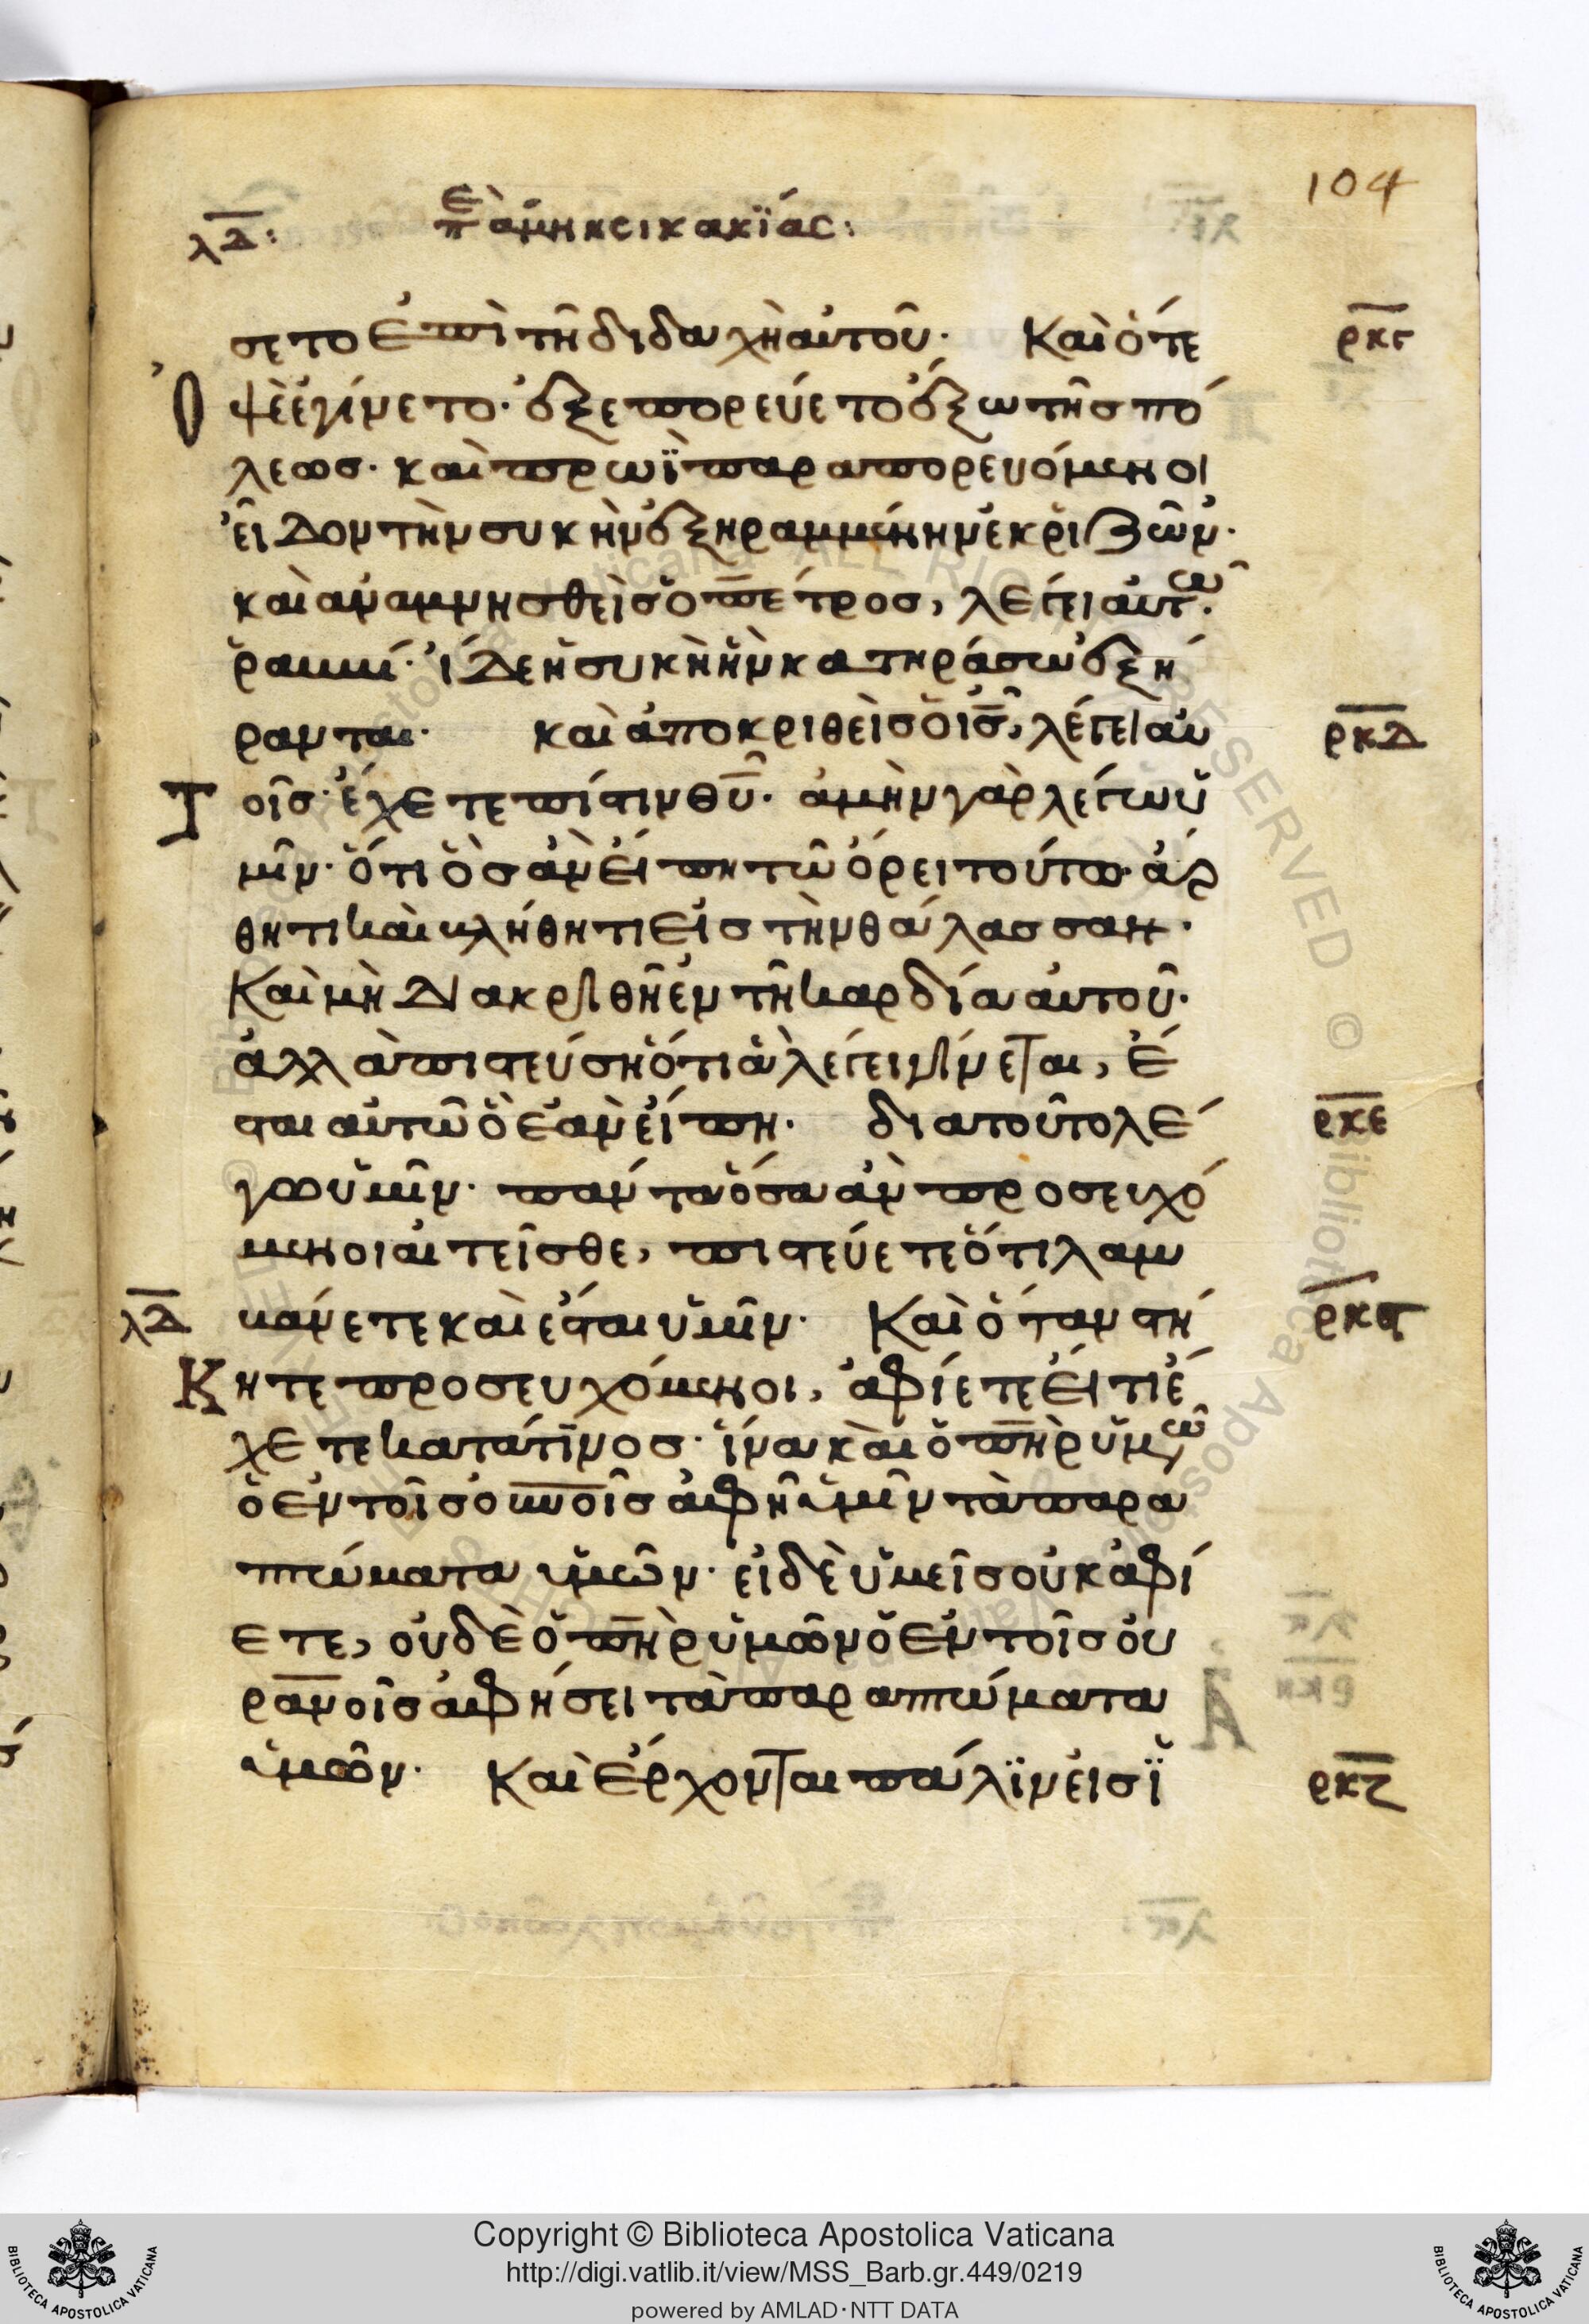 104
λδ: πε ἀμνησικακϊάς:
σετο ἐπὶ τῆ διδαχὴ αὐτοῦ. Καὶ ὅτε ρκγ
Ὀψὲ ἐγίνετο. ἐξεπορεύετο ἔξω τῆς πό
λεως. καὶ πρωῒ παραπορευόμενοι
εἶδον τὴν συκὴν ἐξηραμμένην ἐκ ριζῶν.
καὶ ἀναμνησθεὶς ὁ πέτρος, λέγει αὐτῶ.
ῥαββί. ἴδε ἡ συκὴ ἣν κατηράσω ἐξή
ρανται. καὶ ἀποκριθεὶς ὁ ις, λέγει αὐ ρκδ
Τοῖς. ἔχετε πίστιν θυ. ἀμὴν γὰρ λέγω ὑ
μῖν. ὅτι ὃς ἂν εἴπη τῶ όρει τούτω. ἄρ
θητι καὶ βλήθητι εἰς τὴν θάλασσαν.
Καὶ μὴ διακριθῆ ἐν τῆ καρδία αὐτοῦ.
ἀλλὰ πιστεύση ὅτι ἃ λέγει γίνεται, ἔ
σται αὐτῶ ὃ ἐὰν εἴπη. διατοῦτο λέ ρκε
γω ὑμῖν. πάντα ὅσα ἂν προσευχό
μενοι αἰτεῖσθε, πιστεύετε ὅτι λαμ
λδ βάνετε καὶ ἔσται ὑμῖν. Καὶ ὅταν στή ρκϛ
Κητε προσευχόμενοι, ἀφίετε εἴ τι ἔ
χετε κατά τινος. ἵνα καὶ ὁ πηρ ὑμῶν
ὁ ἐν τοῖς ουνοῖς ἀφῆ ὑμῖν τὰ παρα
πτώματα ὑμῶν. εἰ δὲ ὑμεῖς οὐκ ἀφί
ετε, οὐδὲ ὁ πηρ ὑμῶν ὁ ἐν τοῖς οὐ
ρανοῖς ἀφήσει τὰ παραπτώματα
ὑμῶν. Καὶ ἔρχονται πάλϊν εἰς ϊ ρκζ
Copyright © Biblioteca Apostolica Vaticana
http://digi.vatlib.it/view/MSS_Barb.gr.449/0219
powered by AMLAD·NTT DATA
BIBLIOTECA APOSTOLICA VATICANA
BIBLIOTECA APOSTOLICA VATICANA